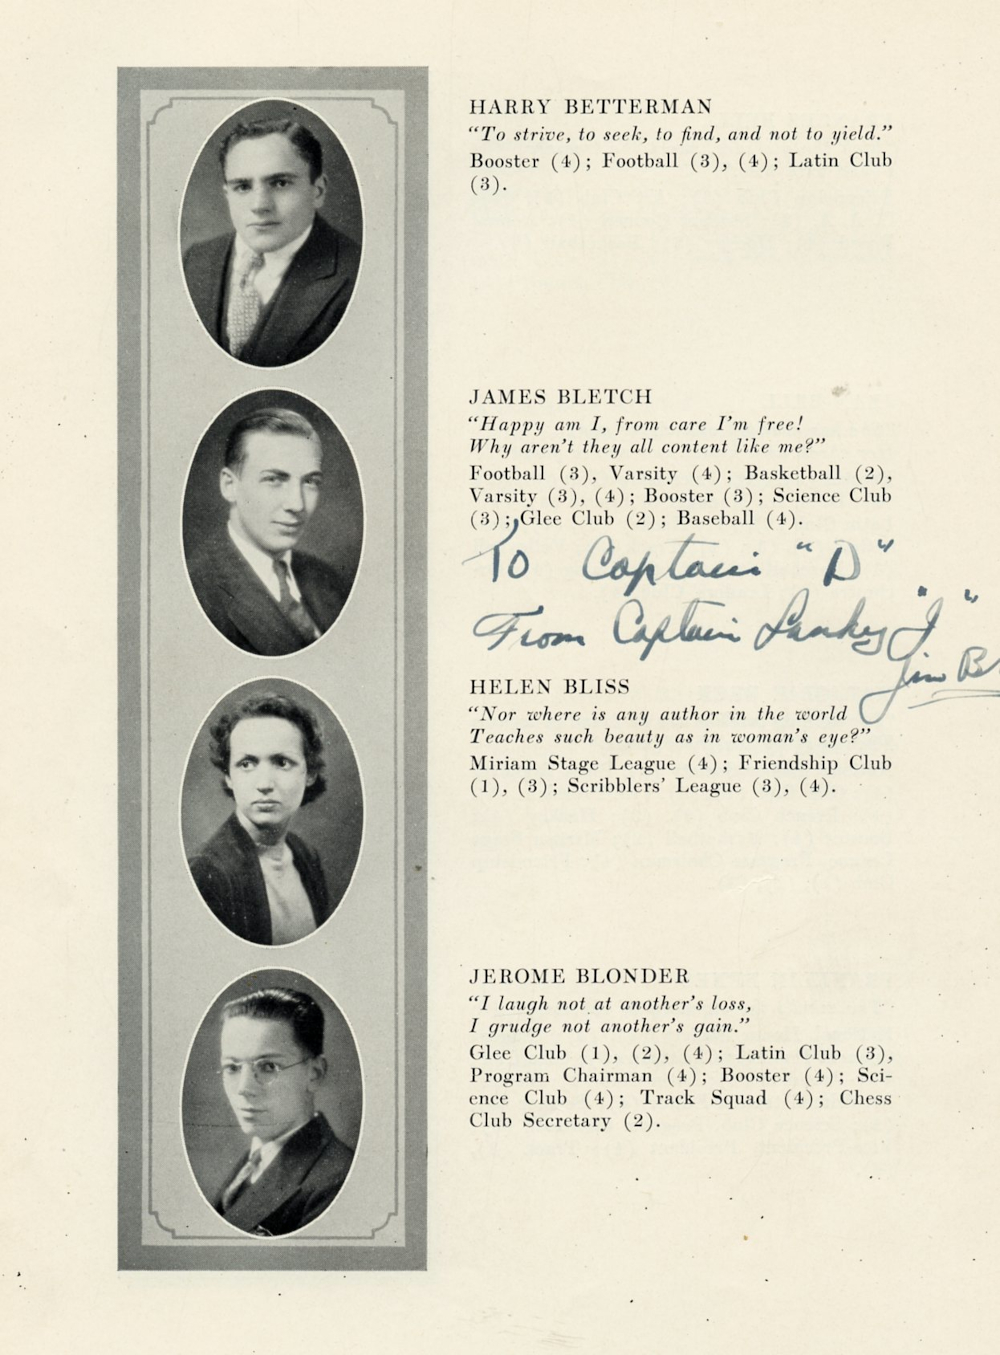 HARRY BETTERMAN
“To strive, to seek, to find, and not to yield.”
Booster (4); Football (3), (4); Latin Club
(3).
JAMES BLETCH
“Happy am I, from care I'm free!
Why aren't they all content like me?”
Football (3), Varsity (4); Basketball (2),
Varsity (3), (4); Booster (3); Science Club
(3); Glee Club (2); Baseball (4).
To Captain "D"
From Captain Lanky "J"
Jim
HELEN BLISS
“Nor where is any author in the world
Teaches such beauty as in woman's eye?”
Miriam Stage League (4); Friendship Club
(1), (3); Scribblers' League (3), (4).
JEROME BLONDER
“I laugh not at another's loss,
I grudge not another's gain.”
Glee Club (1), (2), (4); Latin Club (3),
Program Chairman (4); Booster (4); Sci-
ence Club (4); Track Squad (4); Chess
Club Secretary (2).